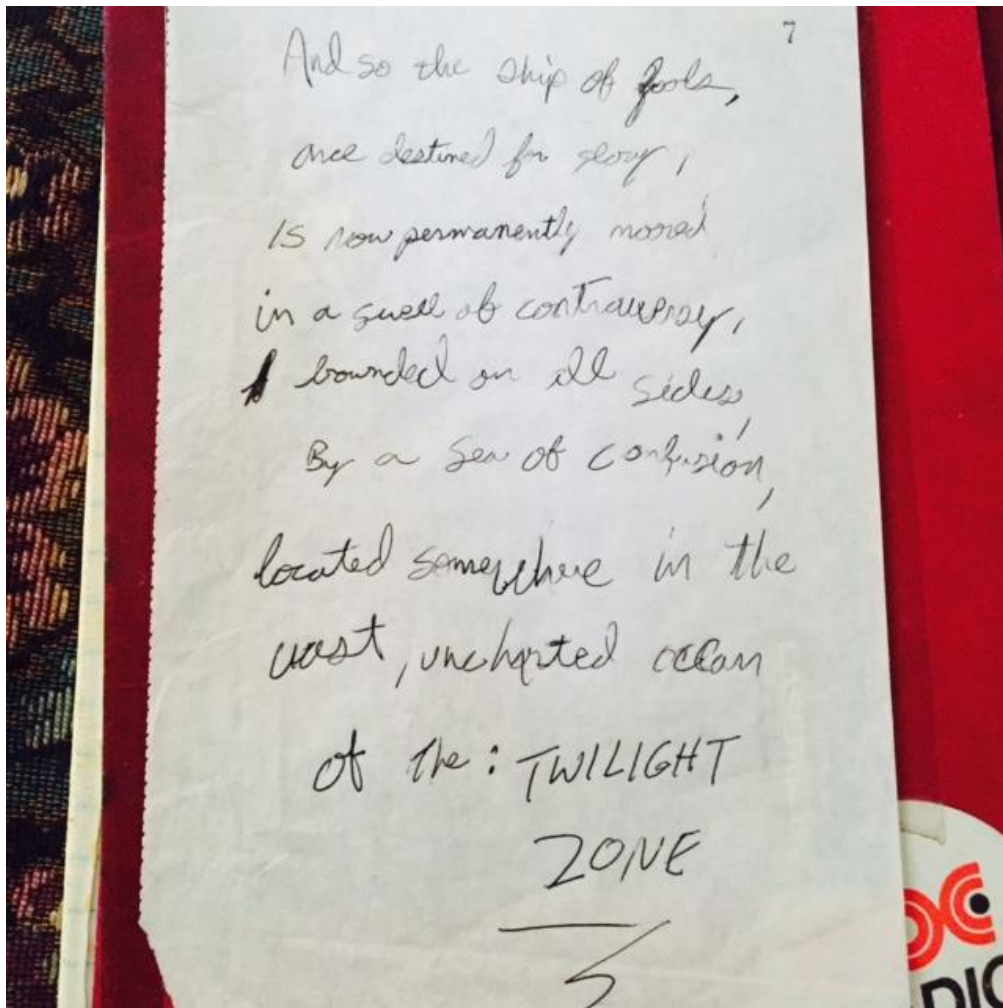 7
And so the ship of fools,
once destined for glory,
Is now permanently moored
in a swell of contraversy,
bounded on all sides,
By a sea of confusion,
located somewhere in the
vast, uncharted ocean
of the: TWILIGHT
ZONE
DIC